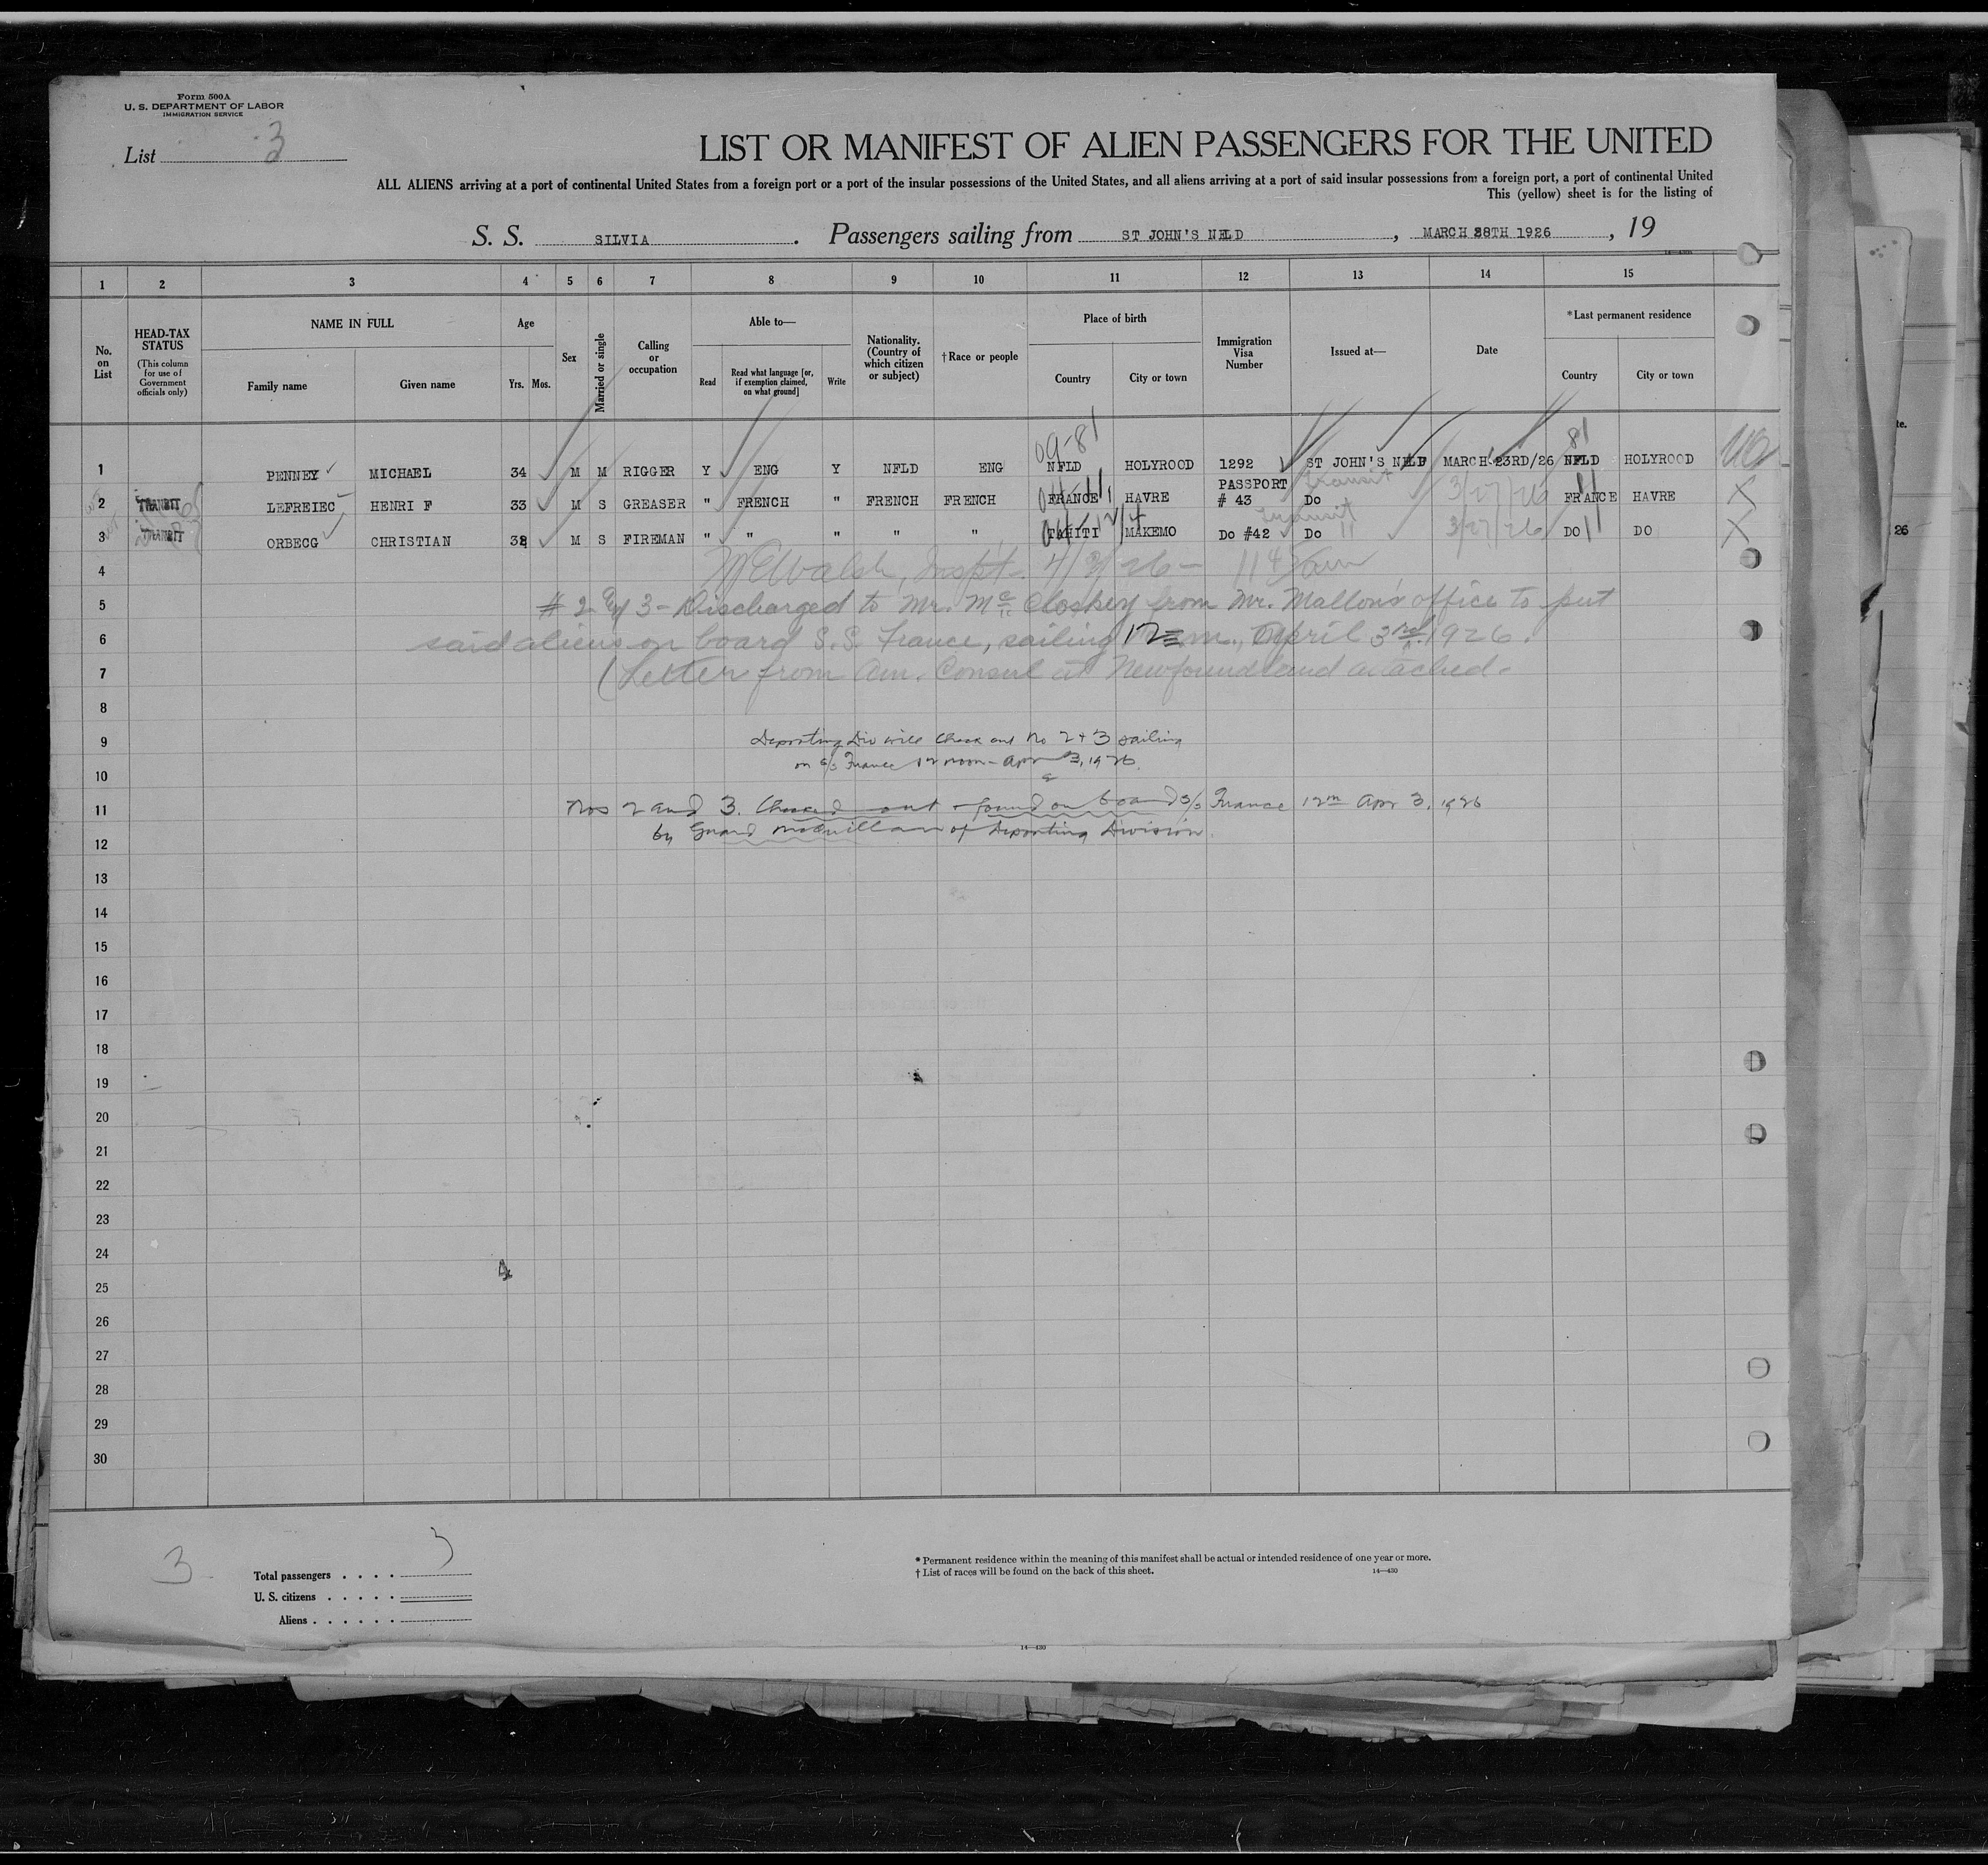 Form 500A
U. S. DEPARTMENT OF LABOR
IMMIGRATION SERVICE
List 3
LIST OR MANIFEST OF ALIEN PASSENGERS FOR THE UNITED
ALL ALIENS arriving at a port of continental United States from a foreign port or a port of the insular possessions of the United States, and all aliens arriving at a port of said insular possessions from a foreign port, a port of continental United
This (yellow) sheet is for the listing of
S. S. SILVIA. Passengers sailing from ST JOHN'S NFLD, MARCH 28TH 1926, 19
1 2 3 4 5 6 7 8 9 10 11 12 13 14 15
No. on List
HEAD-TAX STATUS
(This column for use of Government officials only)
NAME IN FULL
Family name
Given name
Age
Yrs. Mos.
Sex
Married or single
Calling or occupation
Able to—
Read
Read what language [or, if exemption claimed, on what ground]
Write
Nationality. (Country of which citizen or subject)
†Race or people
Place of birth
Country
City or town
Immigration Visa Number
Issued at—
Date
*Last permanent residence
Country
City or town
09-81 81
1 PENNEY MICHAEL 34 M M RIGGER Y ENG Y NFLD ENG NFLD HOLYROOD 1292 ST JOHN'S NFLD MARCH 23RD/26 NFLD HOLYROOD
2 TRANSIT LEFREIEC HENRI F 33 M S GREASER " FRENCH " FRENCH FRENCH FRANCE HAVRE PASSPORT # 43 Do transit 3/27/26 FRANCE HAVRE X
3 TRANSIT ORBECG CHRISTIAN 32 M S FIREMAN " " " " " TAHITI MAKEMO Do #42 Do transit 3/27/26 DO DO X
4 Walsh, Inspt. 4/3/26 – 11 45 am
5 # 2 & 3 - Discharged to Mr. McCloskey from Mr. Mallon's office to put
6 said aliens on board S.S. France, sailing 12 m., April 3rd 1926.
7 (Letter from Am. Consul at Newfoundland attached.
8
9 Deporting Div will check out No 2 + 3 sailing
10 on s/s France 12 noon - Apr 3, 1926.
11 Nos 2 and 3. Checked out - found on board s/s France 12m Apr 3, 1926
12 by Guard McQuillan of Deporting Division.
13
14
15
16
17
18
19
20
21
22
23
24
25
26
27
28
29
30
3
Total passengers . . . . 3
U. S. citizens . . . . .
Aliens . . . . . .
* Permanent residence within the meaning of this manifest shall be actual or intended residence of one year or more.
† List of races will be found on the back of this sheet.
14—430
14—430